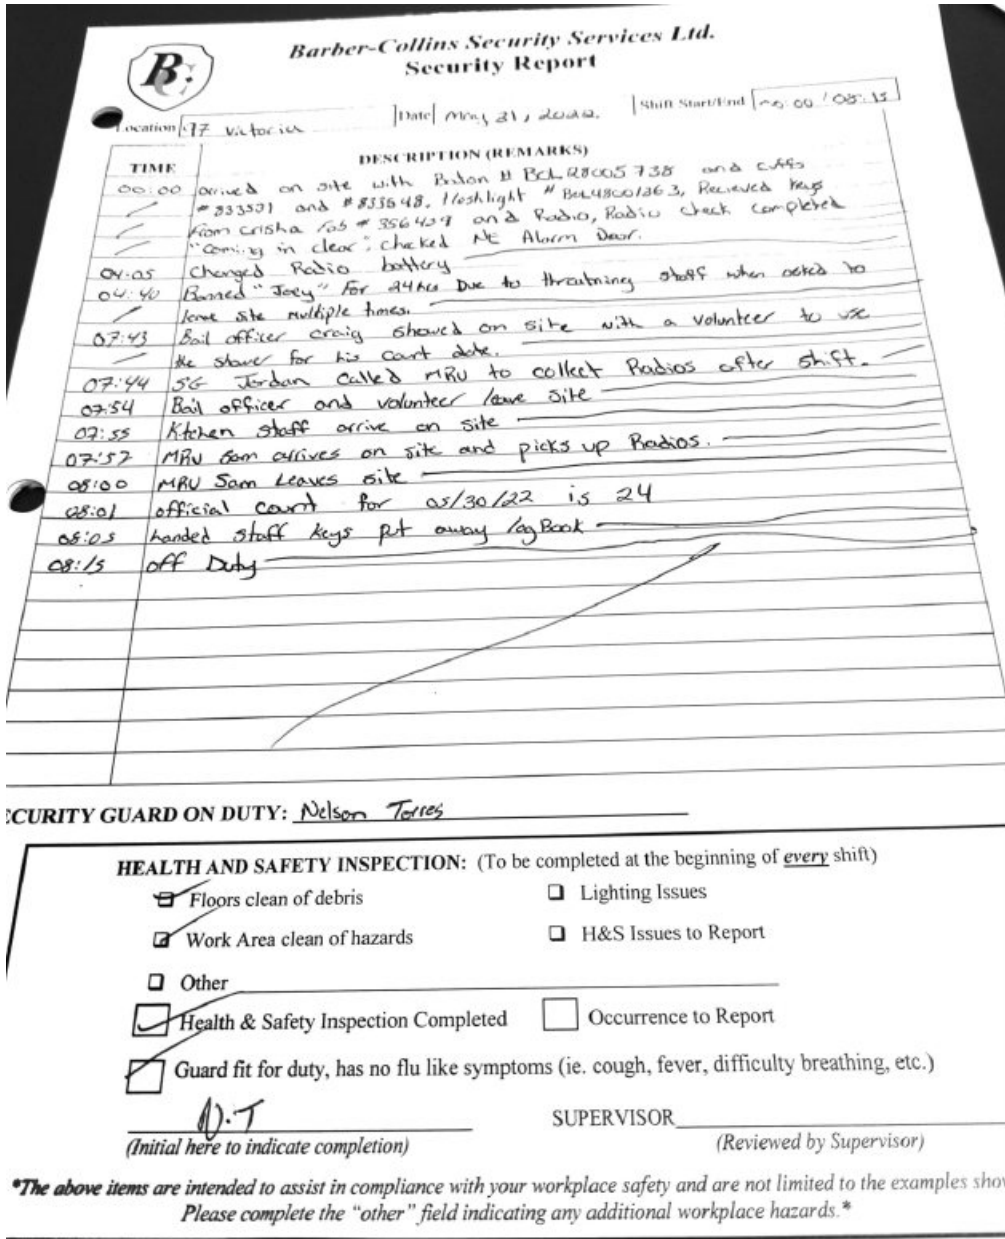 BC
Barber-Collins Security Services Ltd.
Security Report
Location 97 Victoria Date May 31, 2022. Shift Start/End 00:00 / 08:15
TIME DESCRIPTION (REMARKS)
00:00 arrived on site with Baton # BCL28005738 and cuffs
#833501 and #833548, flashlight # BCL48001363, Recieved keys
from crisha fob # 356439 and Radio, Radio check completed
"Coming in clear", checked NE Alarm Door.
04:05 Changed Radio battery
04:40 Banned "Joey" For 24hrs Due to threatning staff when asked to
leave site multiple times.
07:43 Bail officer craig showed on site with a volunteer to use
the shower for his court date.
07:44 SG Jordan Called MRU to collect Radios after shift.
07:54 Bail officer and volunteer leave site
07:55 Kitchen staff arrive on site
07:57 MRU Sam arrives on site and picks up Radios.
08:00 MRU Sam Leaves site
08:01 official count for 05/30/22 is 24
08:05 handed staff keys put away logBook
08:15 off Duty
ECURITY GUARD ON DUTY: Nelson Torres
HEALTH AND SAFETY INSPECTION: (To be completed at the beginning of every shift)
Floors clean of debris Lighting Issues
Work Area clean of hazards H&S Issues to Report
Other
Health & Safety Inspection Completed Occurrence to Report
Guard fit for duty, has no flu like symptoms (ie. cough, fever, difficulty breathing, etc.)
N.T SUPERVISOR
(Initial here to indicate completion) (Reviewed by Supervisor)
*The above items are intended to assist in compliance with your workplace safety and are not limited to the examples show
Please complete the "other" field indicating any additional workplace hazards.*